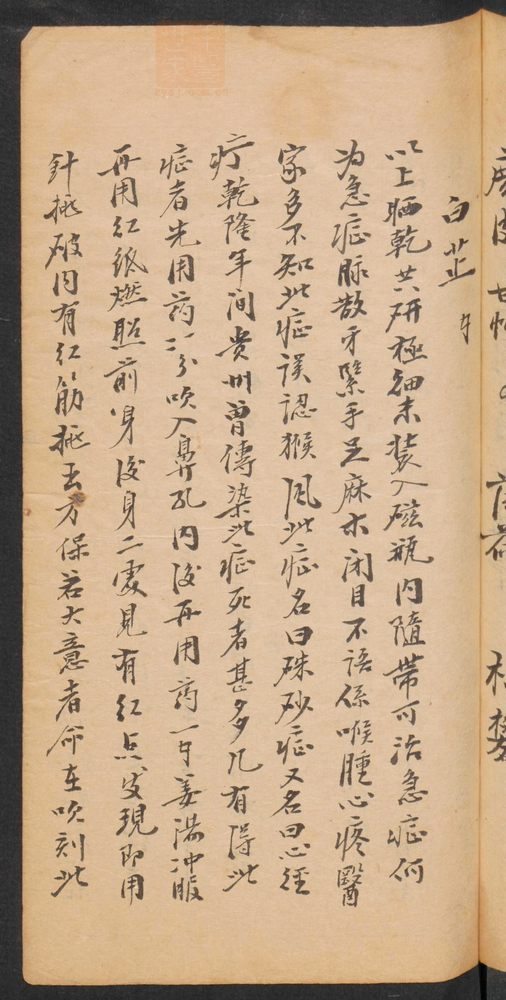 白芷
以上晒乾共研極細末裝入磁瓶内隨帶可治急症何
为急症脉散牙緊手足麻木闭目不语係喉腫心疼醫
家多不知此症誤認猴风此症名曰硃砂症又名曰心经
疔乾隆年间贵州曾傳染此症死者甚多凡有得此
症者先用药二三分吹入鼻孔内後再用药一寸姜湯冲服
再用红纸燃照前身後身二處見有红点发現即用
針挑破内有红筋挑去方保若大意者命在吹刻此